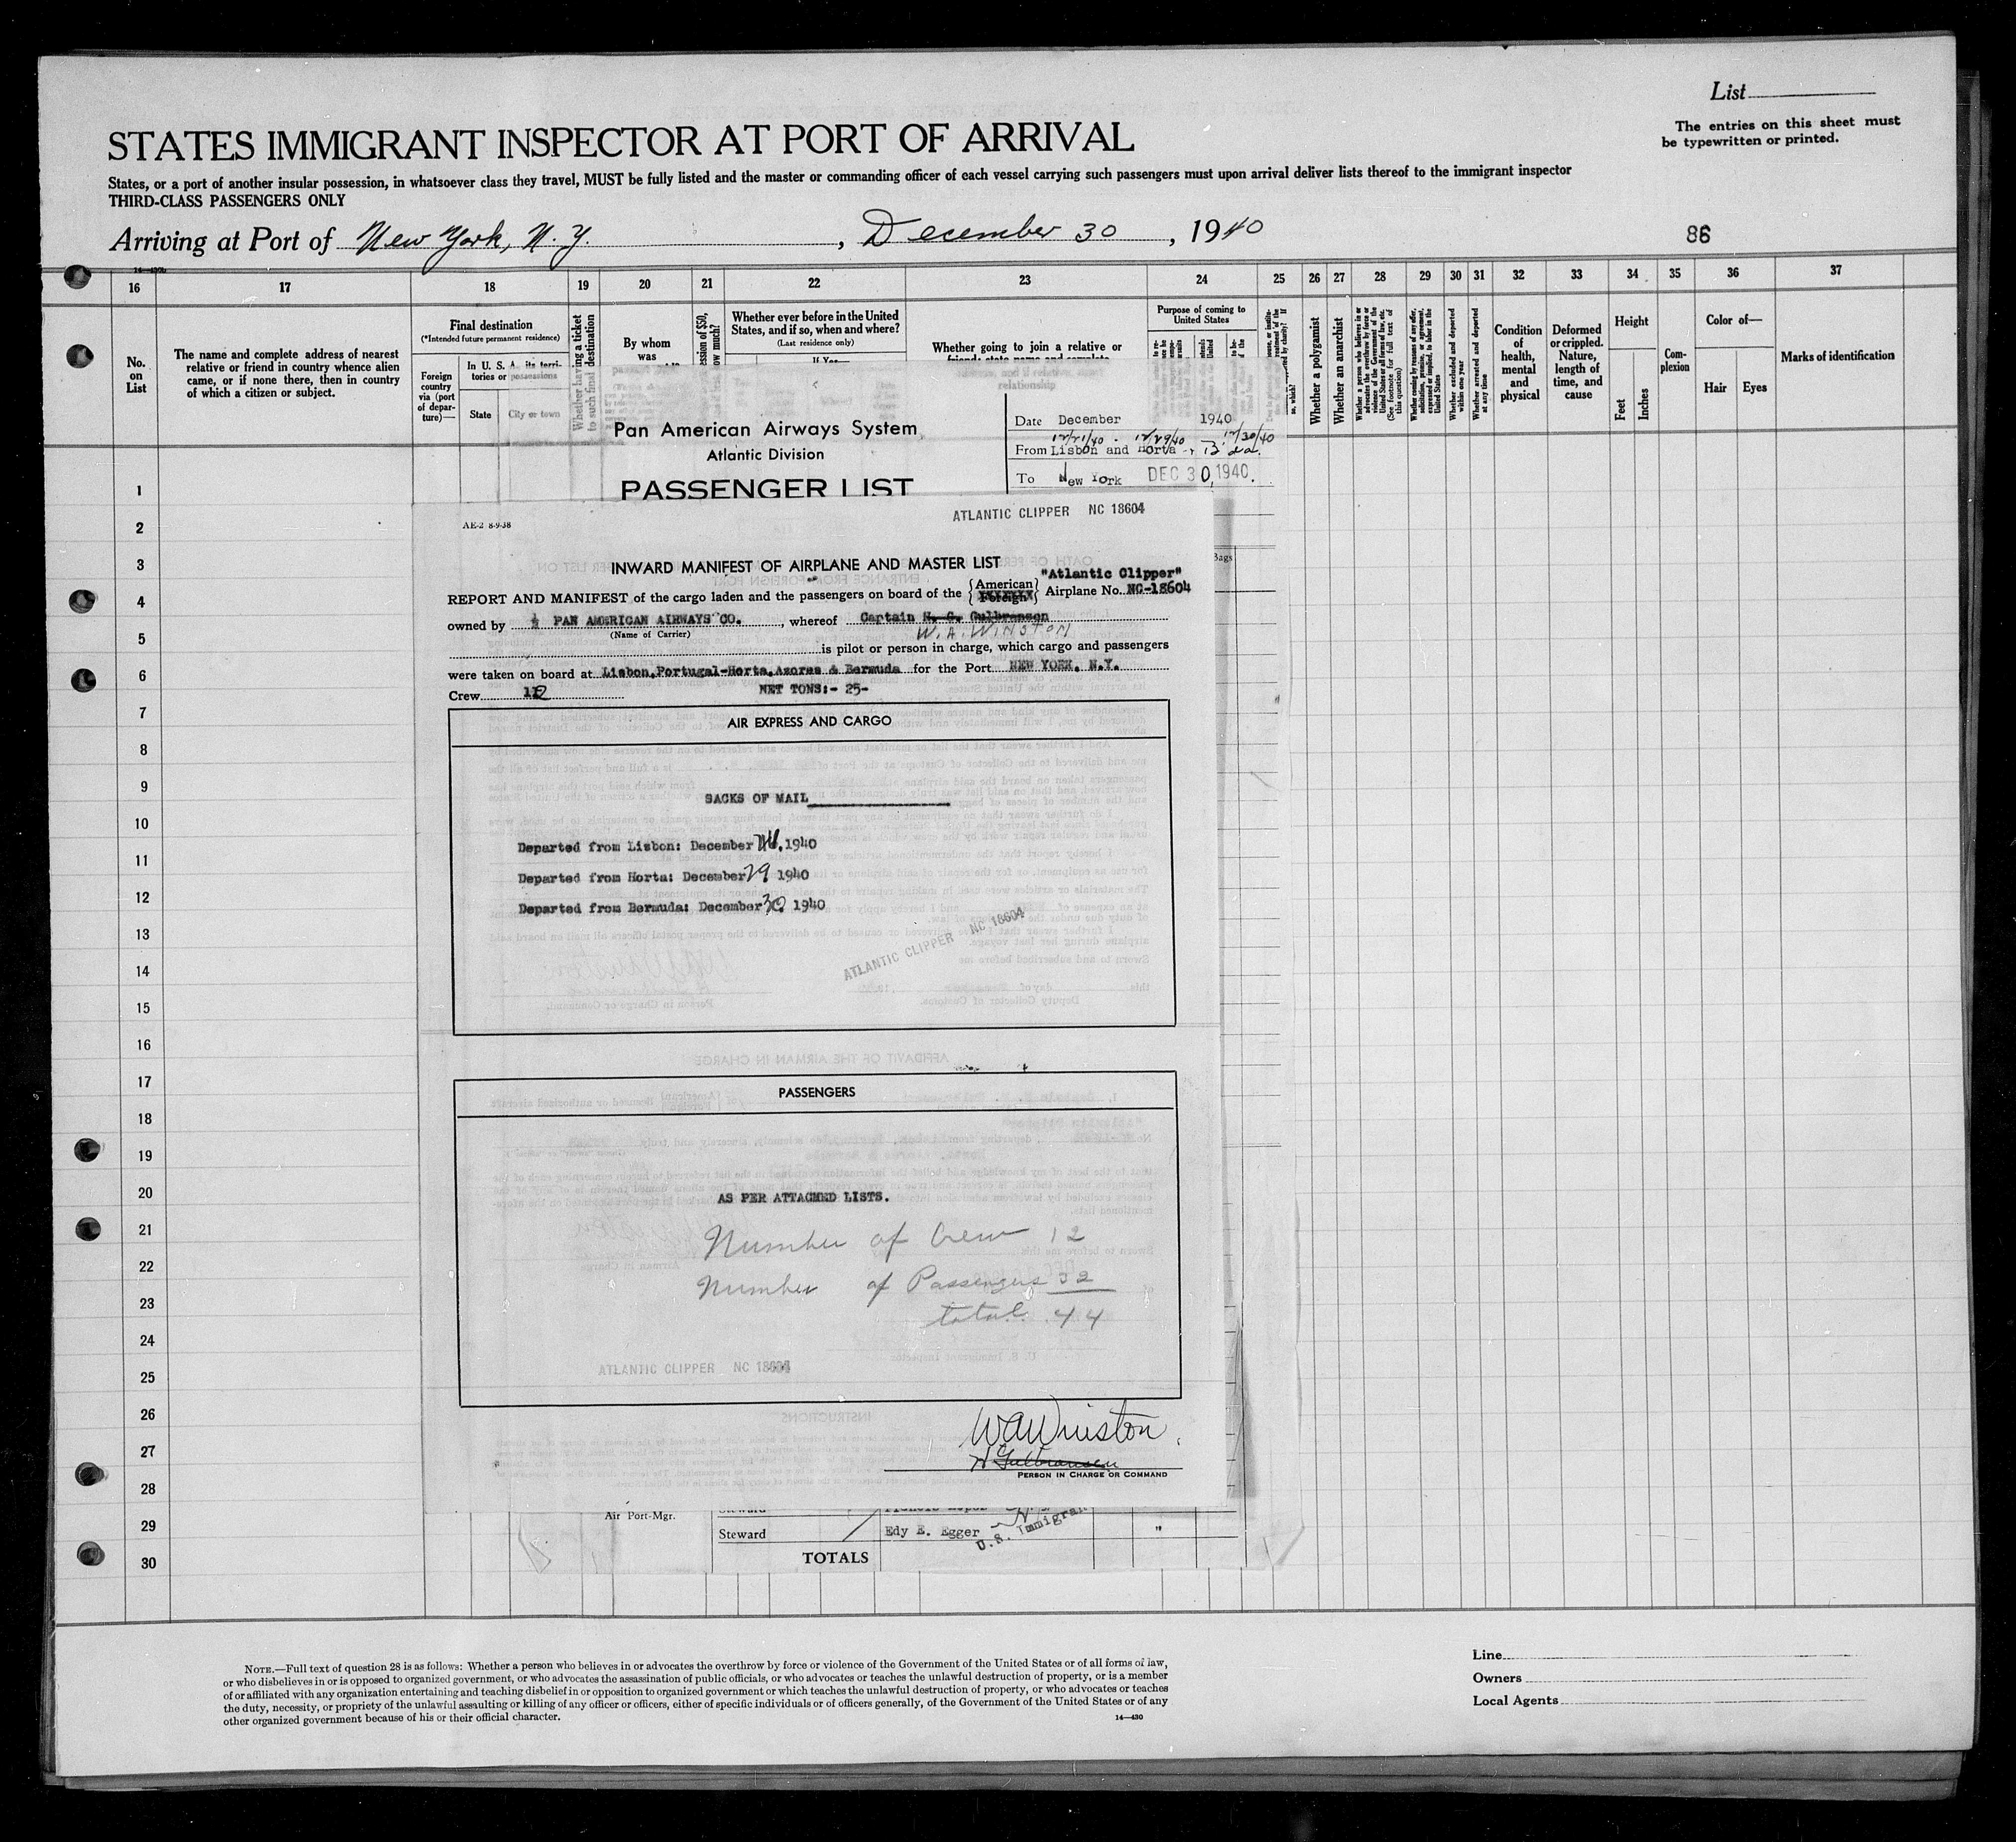 List
The entries on this sheet must
be typewritten or printed.
STATES IMMIGRANT INSPECTOR AT PORT OF ARRIVAL
States, or a port of another insular possession, in whatsoever class they travel, MUST be fully listed and the master or commanding officer of each vessel carrying such passengers must upon arrival deliver lists thereof to the immigrant inspector
THIRD-CLASS PASSENGERS ONLY
Arriving at Port of New York, N. Y. , December 30 , 1940
86
16 17 18 19 20 21 22 23 24 25 26 27 28 29 30 31 32 33 34 35 36 37
No. on List
The name and complete address of nearest
relative or friend in country whence alien
came, or if none there, then in country
of which a citizen or subject.
Final destination
(*Intended future permanent residence)
Foreign
country
via (port
of depar-
ture)—
In U. S. A. its terri-
tories or possessions
State
City or town
Whether having a ticket
to such final destination
By whom
was
Whether ever before in the United
States, and if so, when and where?
(Last residence only)
If Yes—
Whether going to join a relative or
Purpose of coming to
United States
Whether a polygamist
Whether an anarchist
Whether a person who believes in or
advocates the overthrow by force or
violence of the Government of the
United States or all forms of law, etc.
(See footnote for full text of
this question)
Whether coming by reasons of any offer,
solicitation, promise, or agreement,
expressed or implied, to labor in the
United States
Whether excluded and deported
within one year
Whether arrested and deported
at any time
Condition
of
health,
mental
and
physical
Deformed
or crippled.
Nature,
length of
time, and
cause
Height
Feet
Inches
Com-
plexion
Color of—
Hair
Eyes
Marks of identification
Pan American Airways System
Atlantic Division
PASSENGER LIST
Date December 1940
12/21/40 12/29/40 12/30/40
From Lisbon and Horta
To New York DEC 30, 1940.
Bags
AE-2 8-9-38
ATLANTIC CLIPPER NC 18604
INWARD MANIFEST OF AIRPLANE AND MASTER LIST
"Atlantic Clipper"
REPORT AND MANIFEST of the cargo laden and the passengers on board of the { American Foreign } Airplane No. NC-18604
owned by PAN AMERICAN AIRWAYS CO. , whereof Captain H. G. Gulbransen
(Name of Carrier)
W. A. WINSTON
is pilot or person in charge, which cargo and passengers
were taken on board at Lisbon,Portugal-Horta,Azores & Bermuda for the Port NEW YORK, N.Y.
Crew 12 NET TONS:- 25-
AIR EXPRESS AND CARGO
SACKS OF MAIL
Departed from Lisbon: December 1940
Departed from Horta: December 29 1940
Departed from Bermuda: December 30 1940
ATLANTIC CLIPPER NC 18604
PASSENGERS
AS PER ATTACHED LISTS.
Number of Crew 12
Number of Passengers 32
total 44
ATLANTIC CLIPPER NC 18604
WAWinston.
H Gulbransen
PERSON IN CHARGE OR COMMAND
Air Port-Mgr.
Steward Edy E. Egger "
U.S. Immigrant
TOTALS
1
2
3
4
5
6
7
8
9
10
11
12
13
14
15
16
17
18
19
20
21
22
23
24
25
26
27
28
29
30
NOTE.—Full text of question 28 is as follows: Whether a person who believes in or advocates the overthrow by force or violence of the Government of the United States or of all forms of law,
or who disbelieves in or is opposed to organized government, or who advocates the assassination of public officials, or who advocates or teaches the unlawful destruction of property, or is a member
of or affiliated with any organization entertaining and teaching disbelief in or opposition to organized government or which teaches the unlawful destruction of property, or who advocates or teaches
the duty, necessity, or propriety of the unlawful assaulting or killing of any officer or officers, either of specific individuals or of officers generally, of the Government of the United States or of any
other organized government because of his or their official character.
14—430
Line
Owners
Local Agents